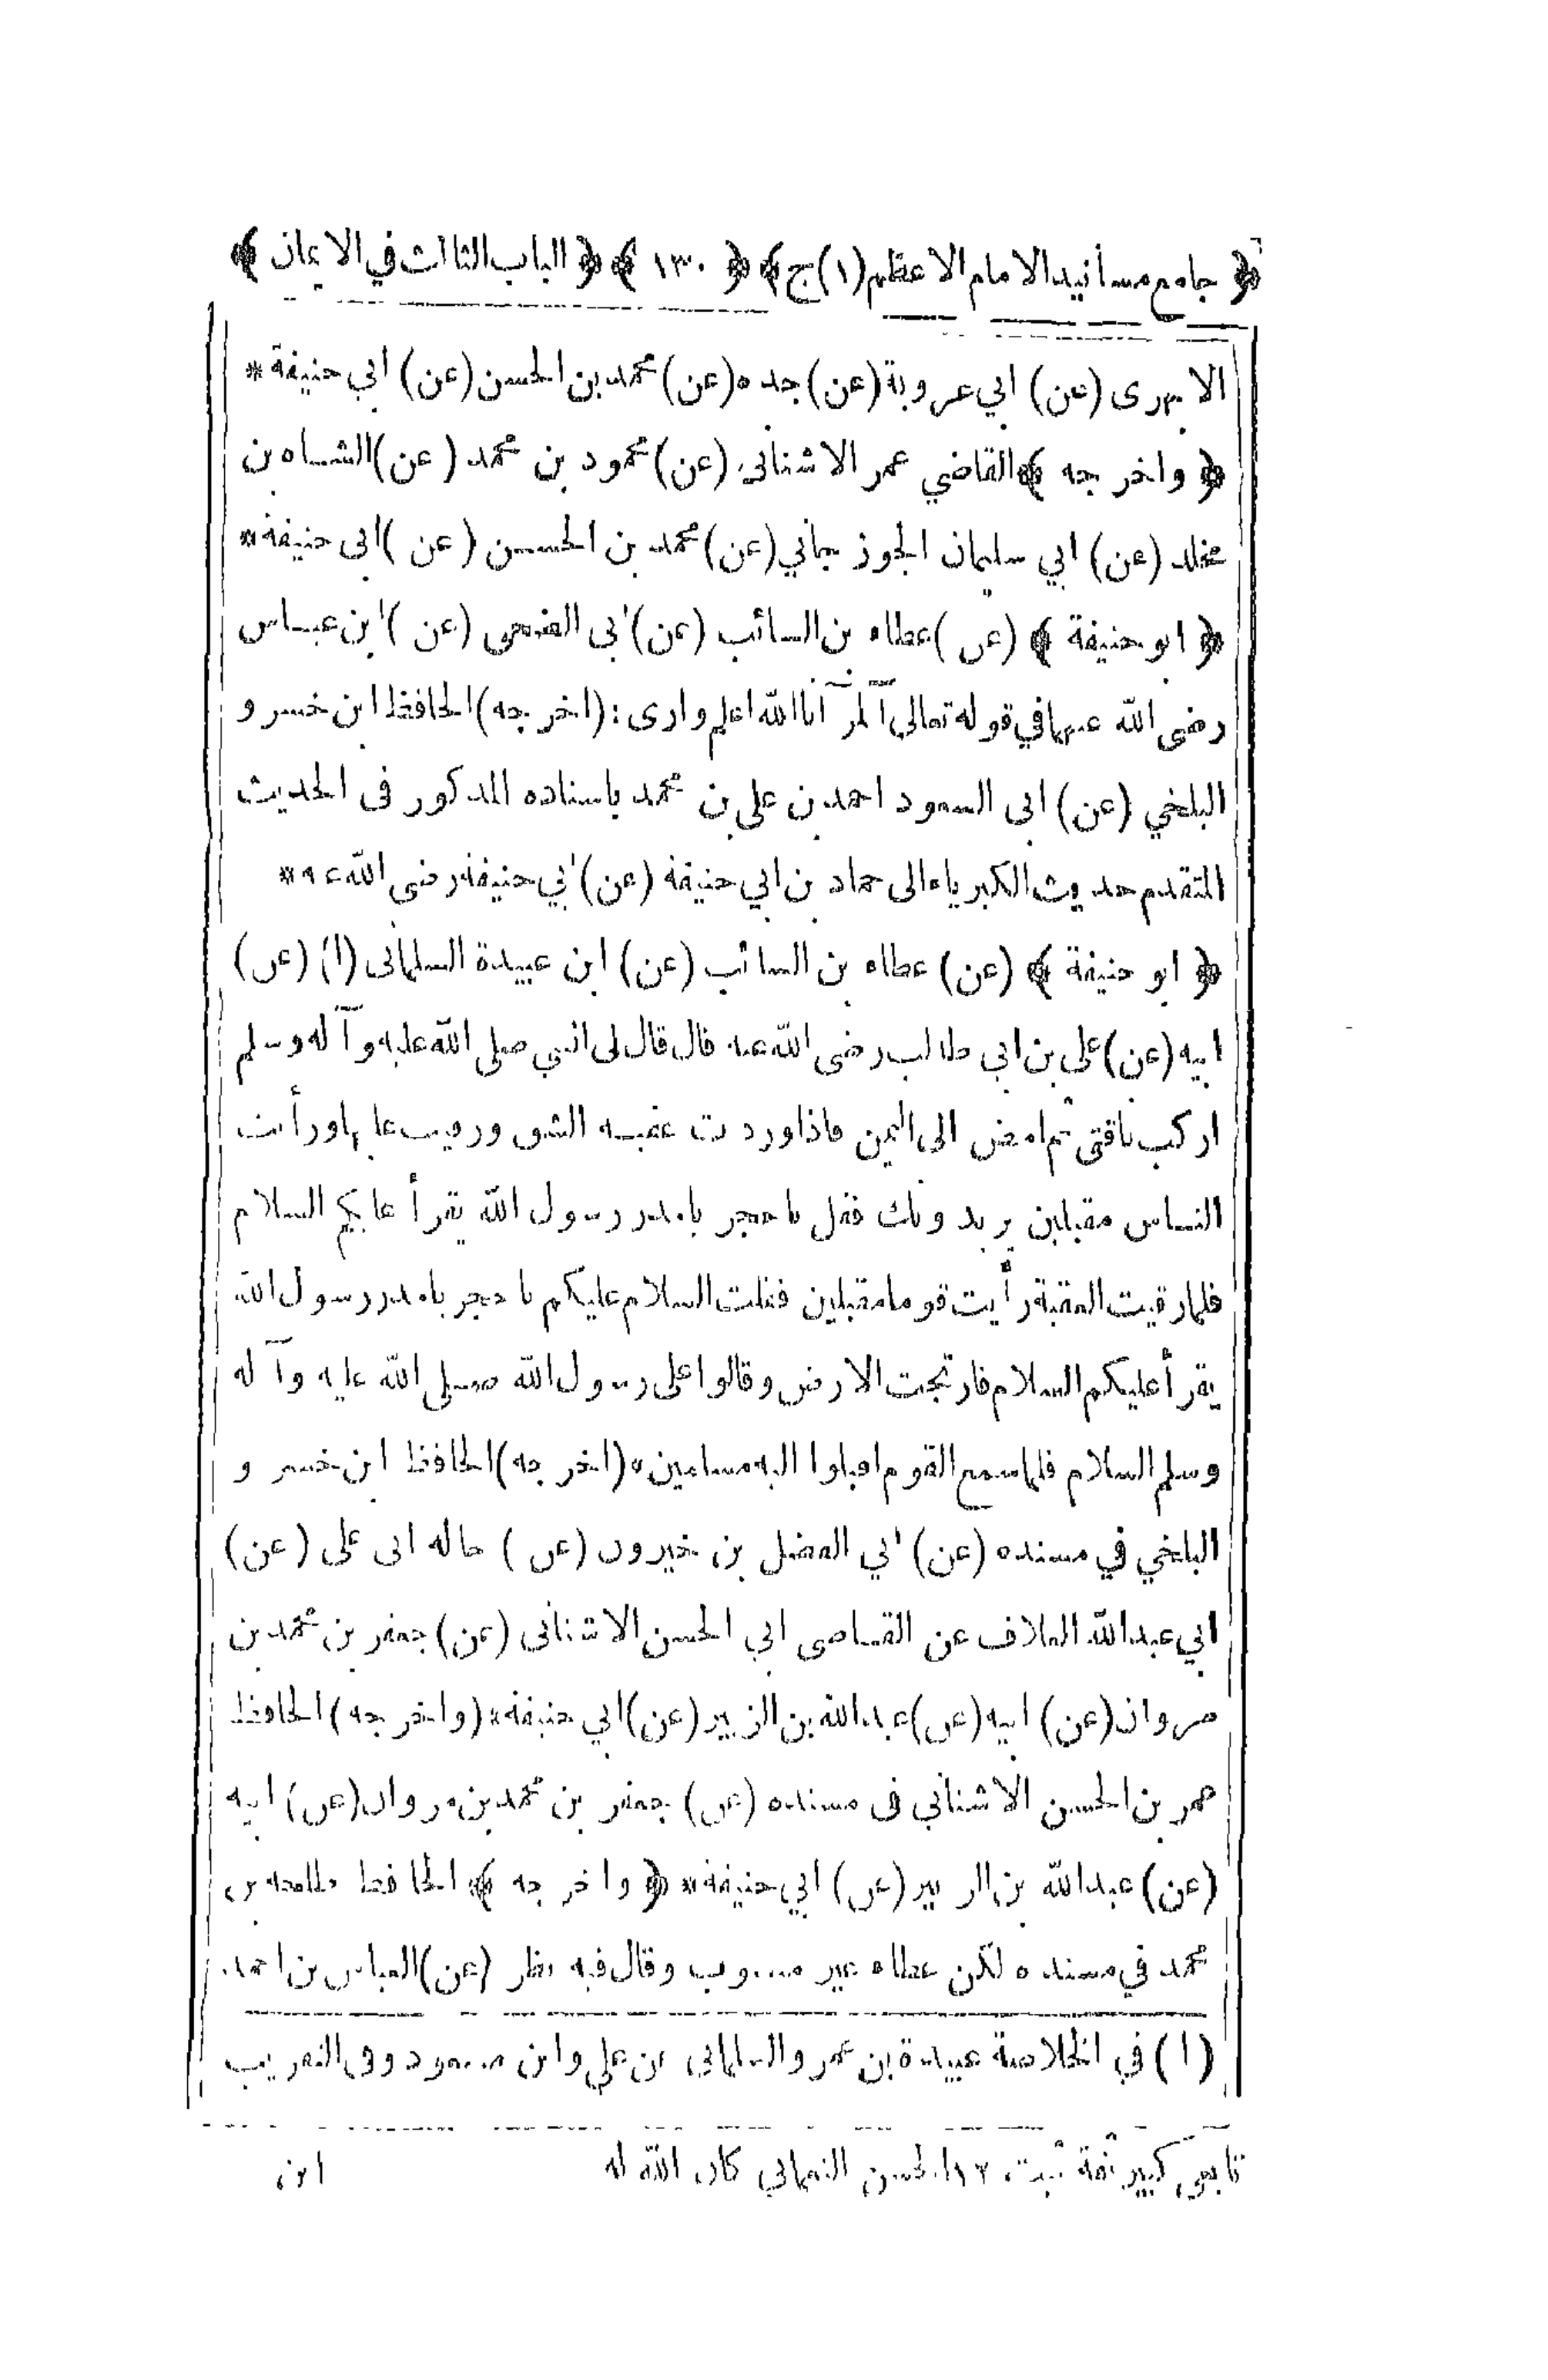 ﴿ جامع مسأنيد الامام الاعظم (١) ج ﴾ ﴿ ١٣٠ ﴾ ﴿ الباب الثالث في الايمان ﴾
الابهرى (عن) ابي عروبة (عن) جده (عن) محمد بن الحسن (عن) ابي حنيفة *
﴿ واخرجه ﴾ القاضي عمر الاشنانى (عن) محمود بن محمد (عن) الشاه بن
مخلد (عن) ابي سليمان الجوزجاني (عن) محمد بن الحسن (عن) ابى حنيفة *
﴿ ابو حنيفة ﴾ (عن) عطاء بن السائب (عن) ابى الضحى (عن) ابن عباس
رضى الله عنهما في قوله تعالى آلمر آنا الله اعلم وارى : (اخرجه) الحافظ ابن خسرو
البلخي (عن) ابى السعود احمد بن على بن محمد باسناده المذكور فى الحديث
المتقدم حديث الكبرياء الى حماد بن ابي حنيفة (عن) ابي حنيفة رضى الله عنه *
﴿ ابو حنيفة ﴾ (عن) عطاء بن السائب (عن) ابن عبيدة السلمانى (١) (عن)
ابيه (عن) على بن ابي طالب رضى الله عنه قال قال لى النبي صلى الله عليه وآله وسلم
اركب ناقتى ثم امض الى اليمن فاذا وردت عقبة الشق ورقيت عليها ورأيت
الناس مقبلين يريدونك فقل يا حجر يا مدر رسول الله يقرأ عليكم السلام
فلما رقيت العقبة رأيت قوما مقبلين فقلت السلام عليكم يا حجر يا مدر رسول الله
يقرأ عليكم السلام فارتجت الارض وقالوا على رسول الله صلى الله عليه وآله
وسلم السلام فلما سمع القوم اقبلوا اليه مسلمين * (اخرجه) الحافظ ابن خسرو
البلخي في مسنده (عن) ابي الفضل بن خيرون (عن) خاله ابى على (عن)
ابي عبد الله العلاف عن القاضى ابي الحسن الاشنانى (عن) جعفر بن محمد بن
مروان (عن) ابيه (عن) عبد الله بن الزبير (عن) ابي حنيفة * (واخرجه) الحافظ
عمر بن الحسن الاشناني فى مسنده (عن) جعفر بن محمد بن مروان (عن) ابيه
(عن) عبد الله بن الزبير (عن) ابي حنيفة * ﴿ واخرجه ﴾ الحافظ طلحة بن
محمد في مسنده لكن عطاء غير منسوب وقال فيه نظر (عن) العباس بن احمد
(١) في الخلاصة عبيدة بن عمرو السلمانى عن على وابن مسعود وفى التقريب
تابعى كبير ثقة ثبت ١٢ الحسن النعماني كان الله له ابن